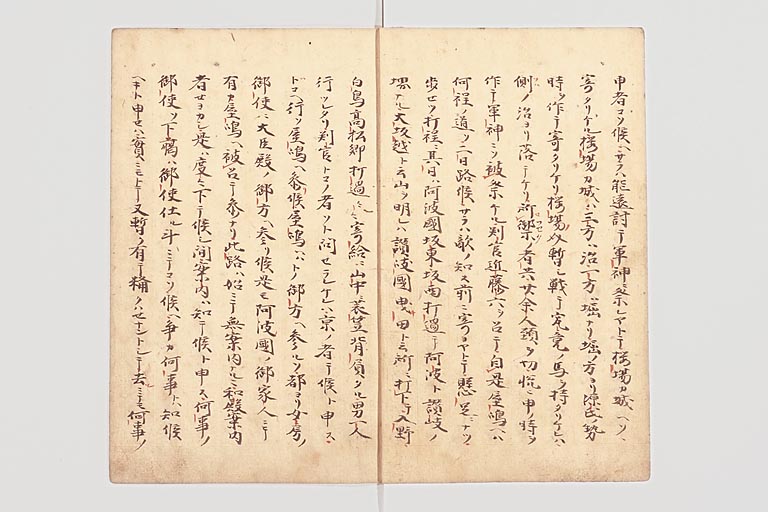 申者コソ候ヘサラハ能遠討テ軍神ニ祭レヤトテ桜場カ城ヘソ
寄タリケル桜場カ城ハ三方ハ沼一方ハ堀ナリ堀ノ方ヨリ源氏ノ勢
時ヲ作テ寄タリケリ桜場奴暫シ戦テ究竟ノ馬ヲ持タリケレハ
側ノ沼ヨリ落テケリ所ノ者共廿余人頭ヲ切
作テ軍神ニソ被祭ケル判官近藤六ヲ召テ自是屋嶋ヘハ
何程ノ道ソ二日路候サラハ敵ノ知ヌ前ニ寄ヨヤトテ懸足ニナツ
歩セツ打程ニ其日ハ阿波國坂東坂西打過テ阿波ト讃岐ノ
堺ナル大坂越ト云山ヲ明レハ讃岐國曳田ト云所ニ打下リ入野
白鳥高松郷打過々々寄給ニ山中ニ蓑笠背負タル男一人
行ツレタリ判官トコノ者ソト問セラレケレハ京ノ者テ候ト申ス
トコヘ行ソ屋嶋ヘ参候屋嶋ヘハトノ御方ヘ参ルソ都ヨリ女房ノ
御使ニ大臣殿ノ御方ヘ参リ候是モ阿波國ノ御家人ニテ
有カ屋嶋ヘ被召テ参ナリ此路ハ始ニテ無案内ナルニ和殿案内
者セヨカシ是ハ度々下テ候間案内ハ知テ候ト申ス何事ノ
御使ソ下臈ハ御使仕ル斗ニテコソ候ヘ争カ何事ト知候
ヘキト申セハ實ニモトテ又暫ク有テ糒クハセナントシテ去ニテモ何事ノ